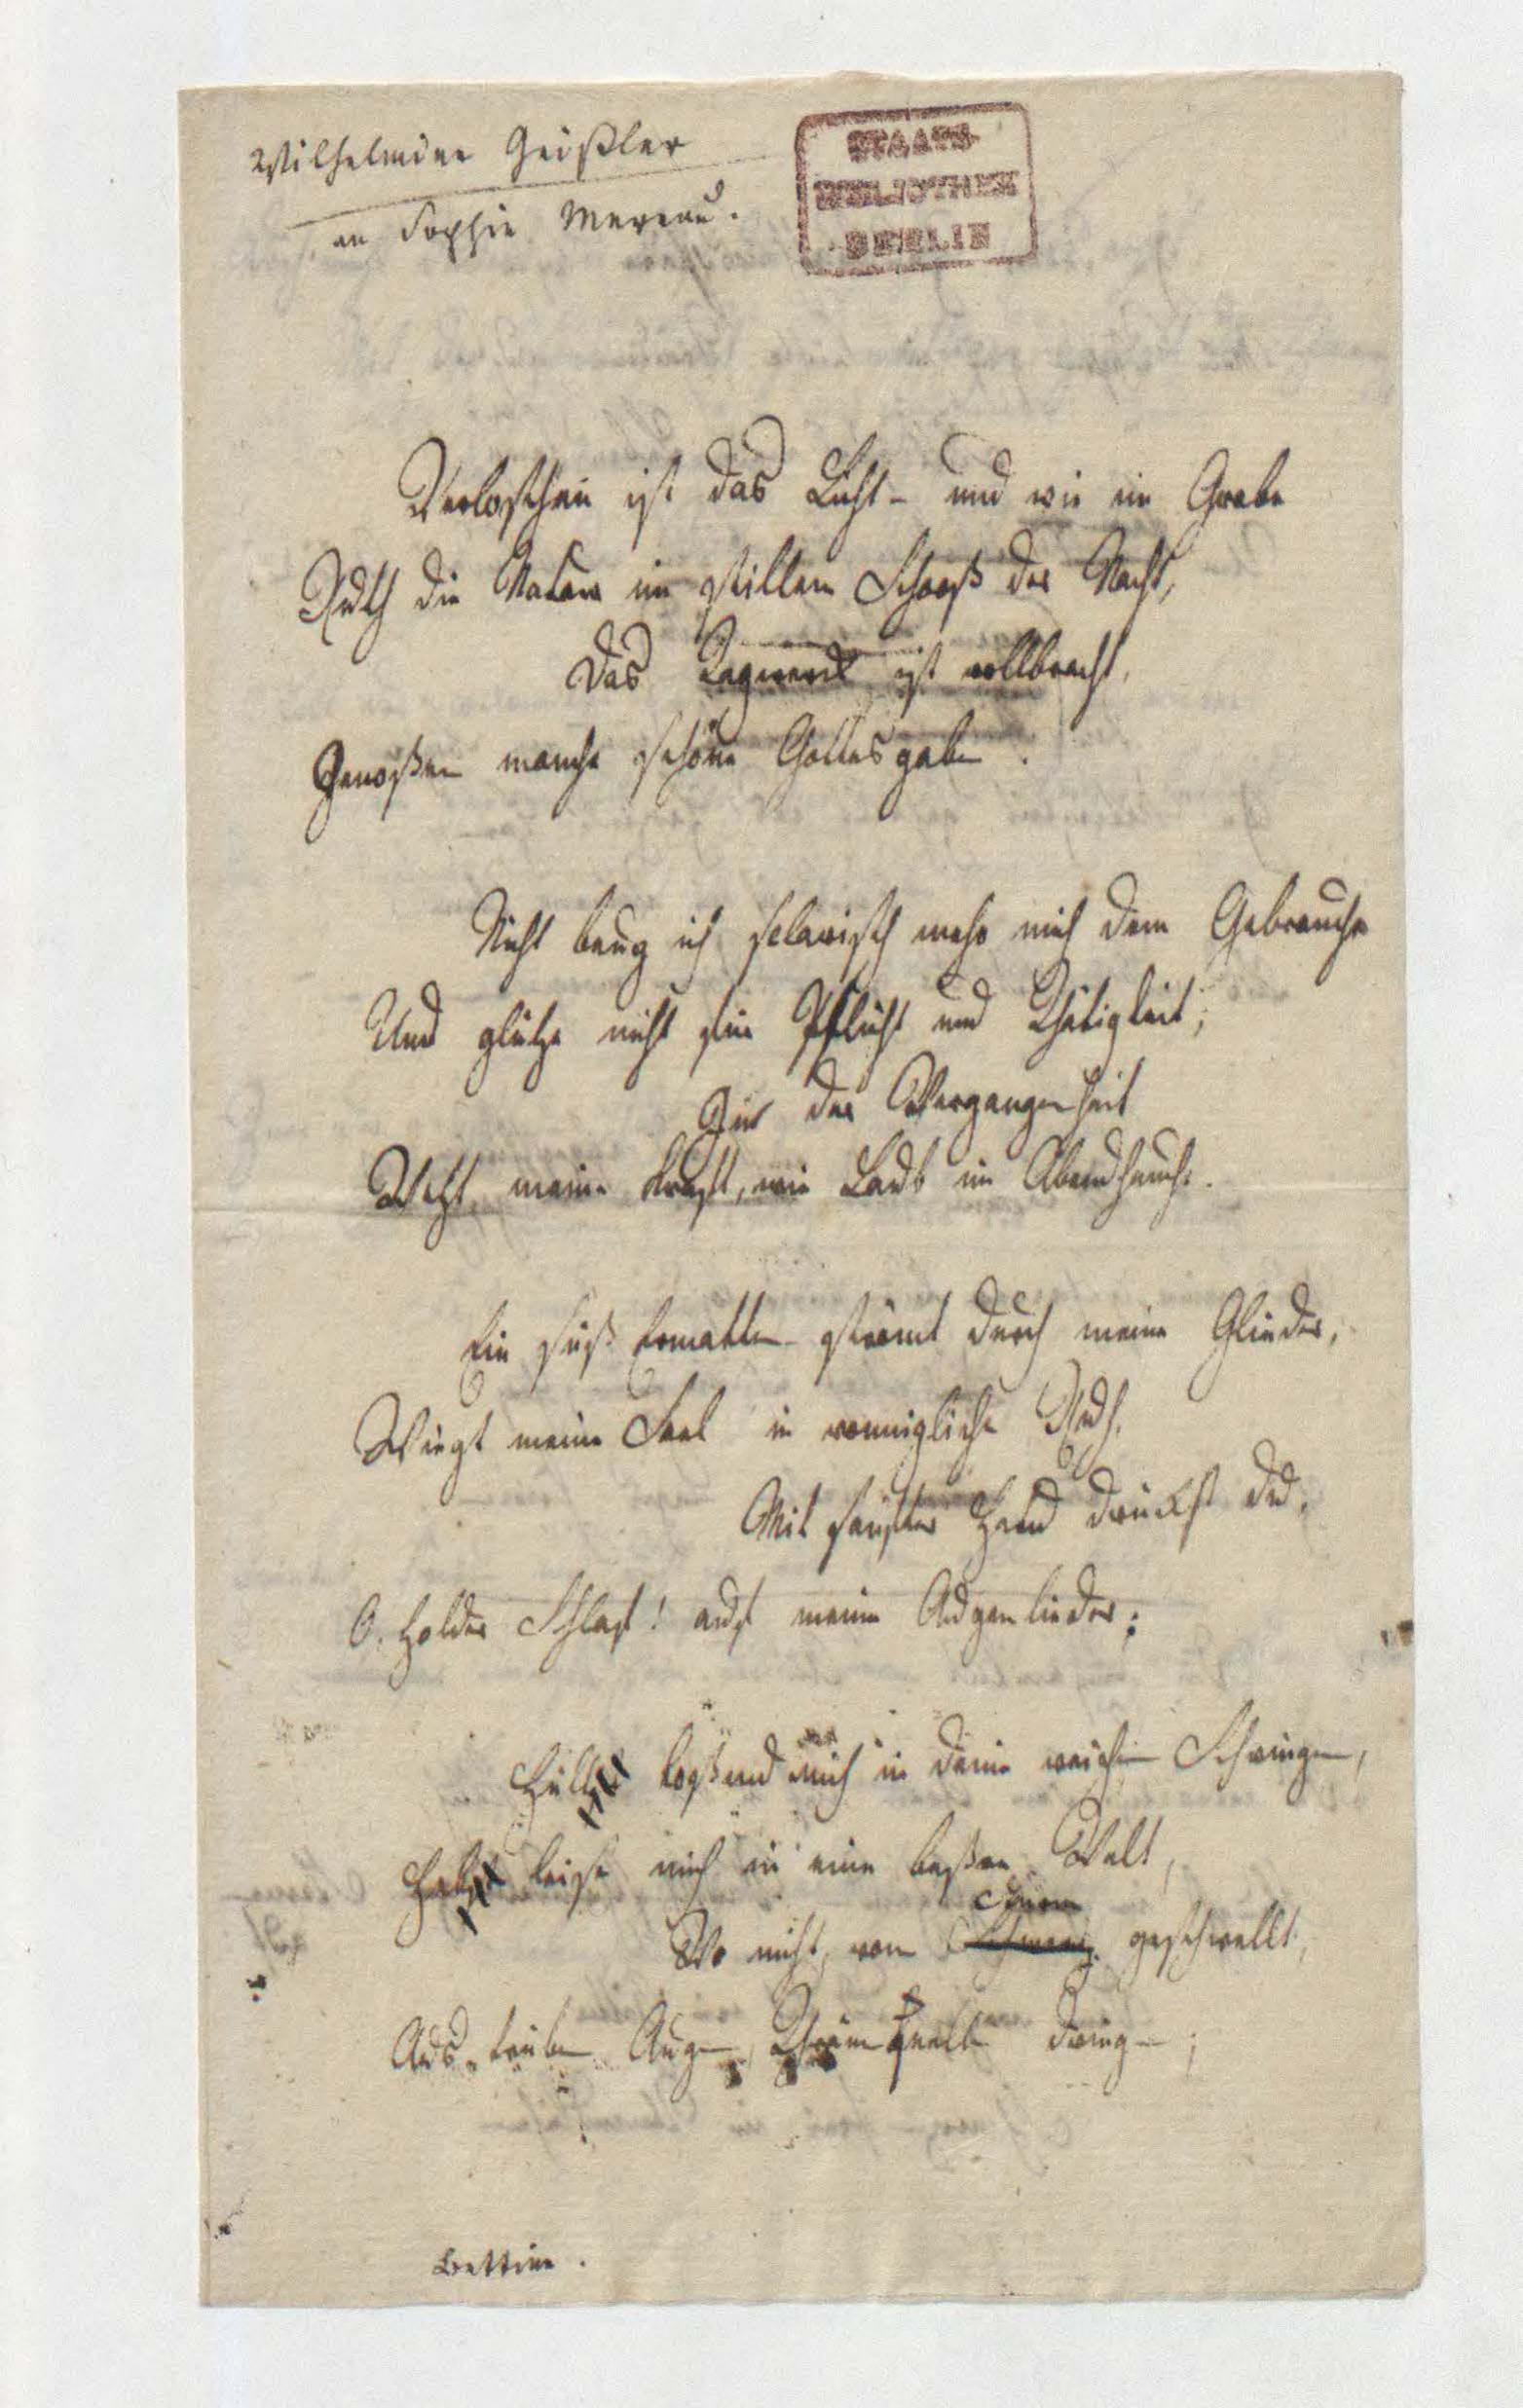 Wilhelmine Geißler
an Sophie Mereau.
STAATS-
BIBLIOTHEK
BERLIN
Verloschen ist das Licht – und wie im Grabe
Ruth die Natur im stillem Schooß der Nacht,
Das Tagwerk ist vollbracht,
Genoßen manche schöne Gottesgabe.
Nicht beug ich sclavisch mehr mich dem Gebrauche
Und glühe nicht für Pflicht und Thätigkeit;
Zur Vergangenheit
Weht meine Kraft, wie Laub im Abendhauche.
Ein süß Ermatten strömt durch meine Glieder,
Wiegt meine Seel in wonnigliche Ruh,
Mit sanfter Hand drückst du,
O. holder Schlaf! auf meine Augenlieder;
Hülle kosend mich in deine weichen Schwingen,
Hebe leise mich in eine beßere Welt,
Wo nicht, vom Schmerz geschwellt,
Aus trüben Augen Thränenquelle dringen;
Bettine.